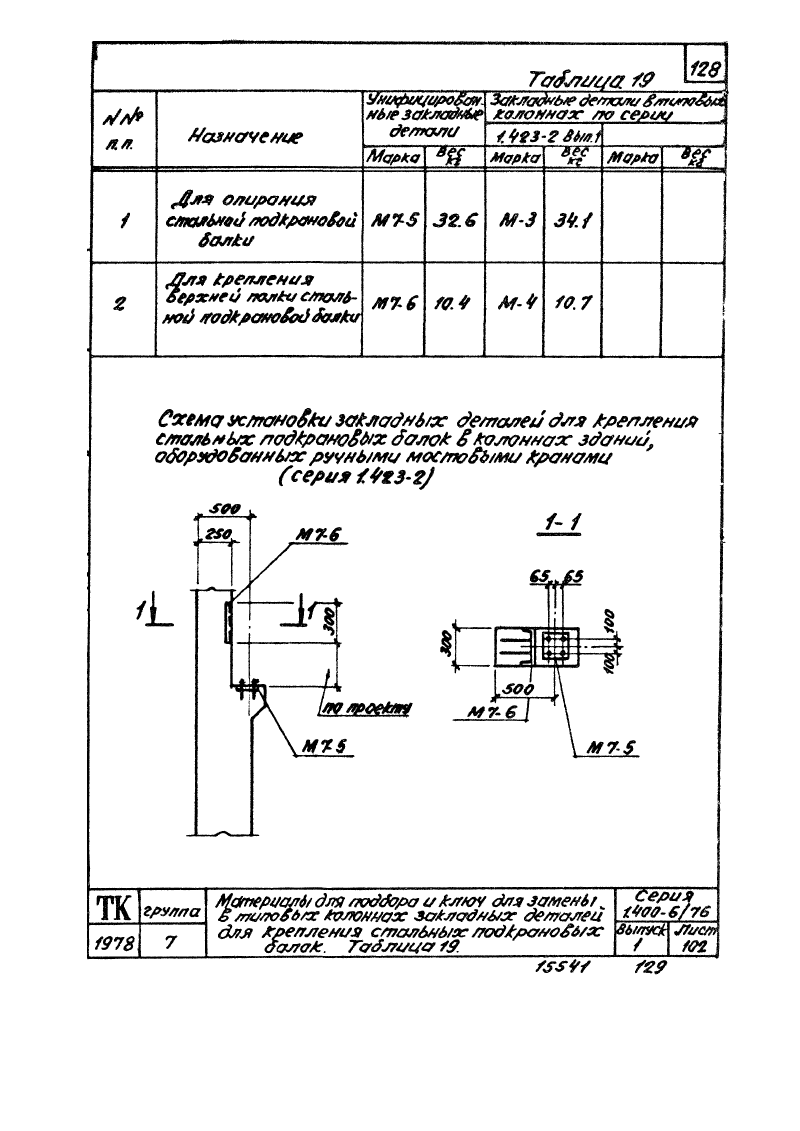 128
Таблица 19
N№
п.п.
Назначение
Унифицирован
ные закладные
детали
Закладные детали в типовых
колоннах по серии
1.423-2 Вып.1
Марка
Вес
кг
Марка
Вес
кг
Марка
Вес
кг
1
Для опирания
стальной подкрановой
балки
М7-5
32.6
М-3
34.1
2
Для крепления
верхней полки сталь-
ной подкрановой балки
М7-6
10.4
М-4
10.7
Схема установки закладных деталей для крепления
стальных подкрановых балок в колоннах зданий,
оборудованных ручными мостовыми кранами
(серия 1.423-2)
500
250
М7-6
1
1
300
по проекту
М7-5
1-1
65
65
300
100
100
500
М7-6
М7-5
ТК
1978
группа
7
Материалы для подбора и ключ для замены
в типовых колоннах закладных деталей
для крепления стальных подкрановых
балок. Таблица 19.
Серия
1.400-6/76
Выпуск
1
Лист
102
15541
129